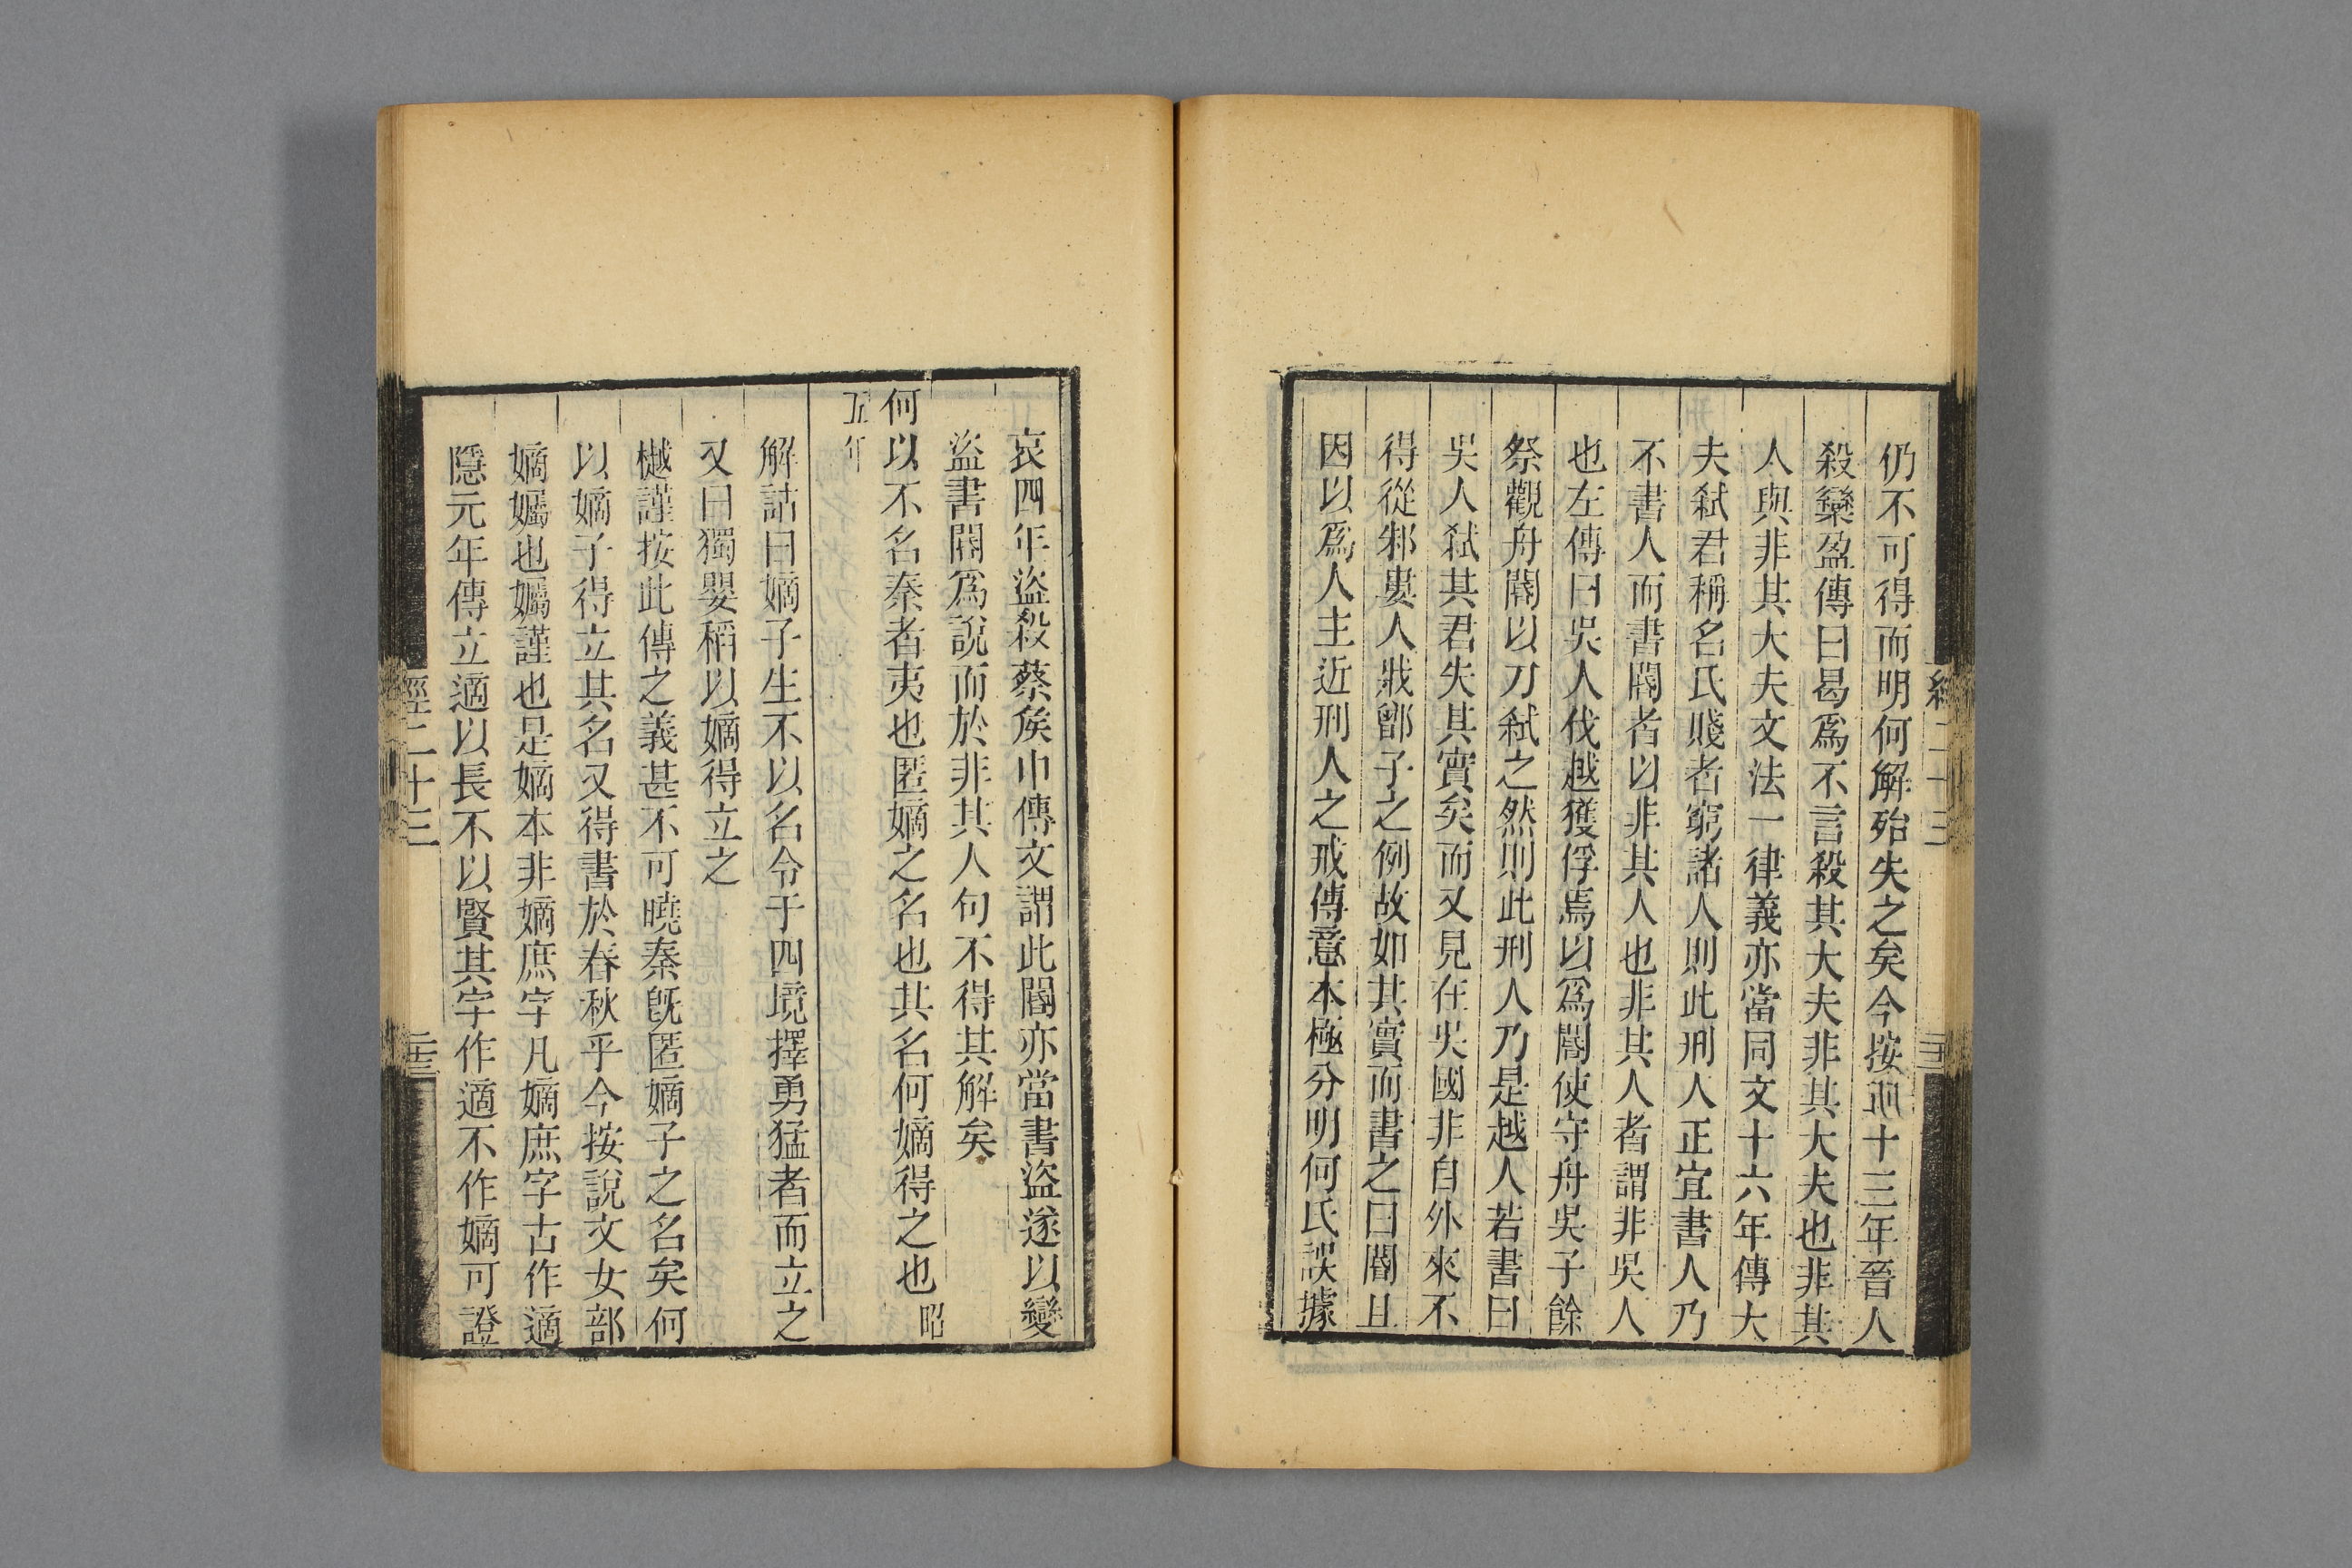 仍不可得而明何解殆失之矣今按十三年晉人
殺欒盈傳曰曷爲不言殺其大夫非其大夫也非其
人與非其大夫文法一律義亦當同文十六年傳大
夫弒君稱名氏賤者窮諸人則此刑人正宜書人乃
不書人而書閽者以非其人也非其人者謂非吳人
也左傳曰吳人伐越獲俘焉以爲閽使守舟吳子餘
祭觀舟閽以刀弒之然則此刑人乃是越人若書曰
吳人弒其君失其實矣而又見在吳國非自外來不
得從邾婁人戕鄫子之例故如其實而書之曰閽且
因以爲人主近刑人之戒傳意本極分明何氏誤據
哀四年盜殺蔡矦巾傳文謂此閽亦當書盜遂以變
盜書閽爲說而於非其人句不得其解矣
何以不名秦者夷也匿嫡之名也其名何嫡得之也昭
五年
解詁曰嫡子生不以名令于四境擇勇猛者而立之
又曰獨嬰稻以嫡得立之
樾謹按此傳之義甚不可曉秦旣匿嫡子之名矣何
以嫡子得立其名又得書於春秋乎今按說文女部
嫡孎也孎謹也是嫡本非嫡庶字凡嫡庶字古作適
隱元年傳立適以長不以賢其字作適不作嫡可證
經二十三